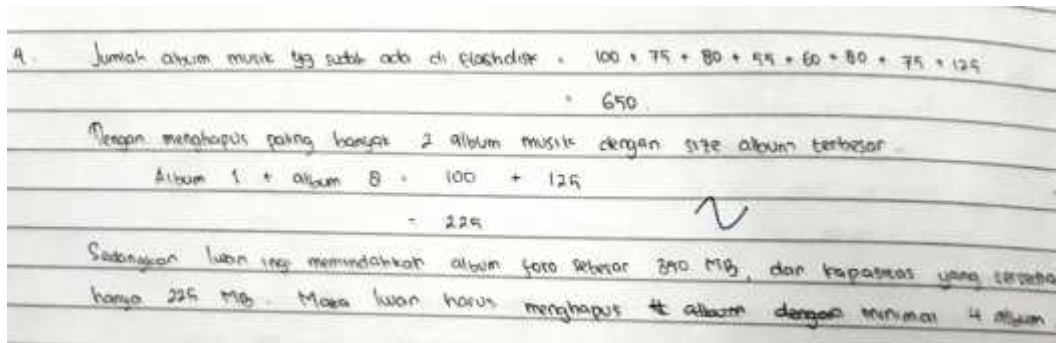 9. Jumlah album musik yg sudah ada di flashdisk = 100 + 75 + 80 + 55 + 60 + 80 + 75 + 125
= 650.
Dengan menghapus paling banyak 2 album musik dengan size album terbesar.
Album 1 + album 8 = 100 + 125
= 225
Sedangkan Iwan ingi memindahkan album foto sebesar 390 MB, dan kapasitas yang tersedia
hanya 225 MB. Maka Iwan harus menghapus minimal 4 album